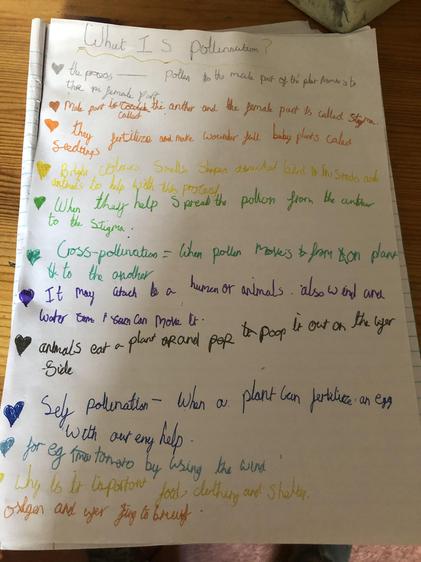 What IS pollination?
the process pollen to the male part of the plant
the female part
Male part is called the anther and the female part is called Stigma.
called
they fertilize and make baby plants called
Seedlings
Bright Smells Shapes and
animals to help with this process
When they help Spread the pollen from the anther
to the Stigma.
Cross-pollination = When pollen moveis from on plant
to the another
It may atach to a human or animals. also wind and
water can move it.
animals eat a plant and poop it out on the
Side
Self pollination - When a plant can fertilize an egg
With out eny help.
for eg tomato by using the wind
Why is it important food clothing and Shelter.
and to